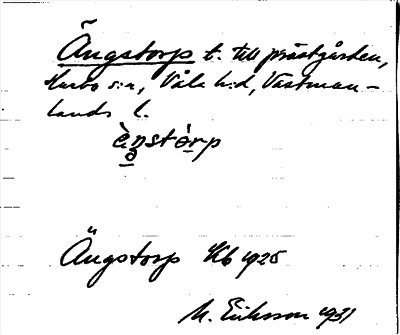 Ängstorp t. till prästgården,
Harbo s:n, Våla h:d, Västman-
lands l.
èn̥stòrp
Ängstorp Kb 1925
M. Eriksson 1931